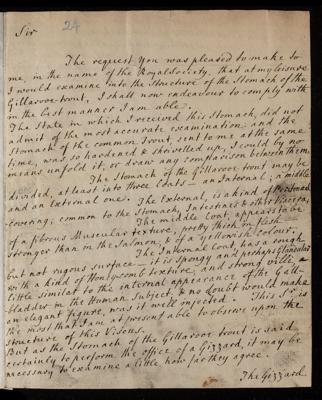 24
Sir
The request you was pleased to make to
me, in the name of the Royal Society, that at my leisure
I would examine into the Structure of the Stomach of the
Gillaroe trout, I shall now endeavour to comply with
in the best manner I am able.
The State in which I received this Stomach, did not
admit of the most accurate examination: and the
Stomach of the common Trout sent to me at the same
time, was so hardened & shrivelled up, I could by no
means unfold it, or draw any comparison between them.
The Stomach of the Gillaroe trout may be
divided, at least into three Coats – an Internal; a middle
and an external one. The External, is a kind of
covering; common to the Stomach, Intestines & other Viscera,
The middle Coat, appears to be
of a fibrous Muscular texture, pretty thick in flesh
stronger than in the Salmon, & of a yellowish colour.
The Internal Coat, has a rough
but not rugous surface – it is spongy and perhaps Glandular
with a kind of Honeycomb texture, and strong villi a
little similar to the internal appearance of the Gall-
bladder in the Human Subject, & no doubt would make
an elegant figure, was it well injected. This Sir, is
the most that I am at present able to observe upon the
structure of this Viscus.
But as the Stomach of the Gillaroe trout is said
certainly to perform the office of a Gizzard, it may be
necessary to examine a little how far they agree.
The Gizzard